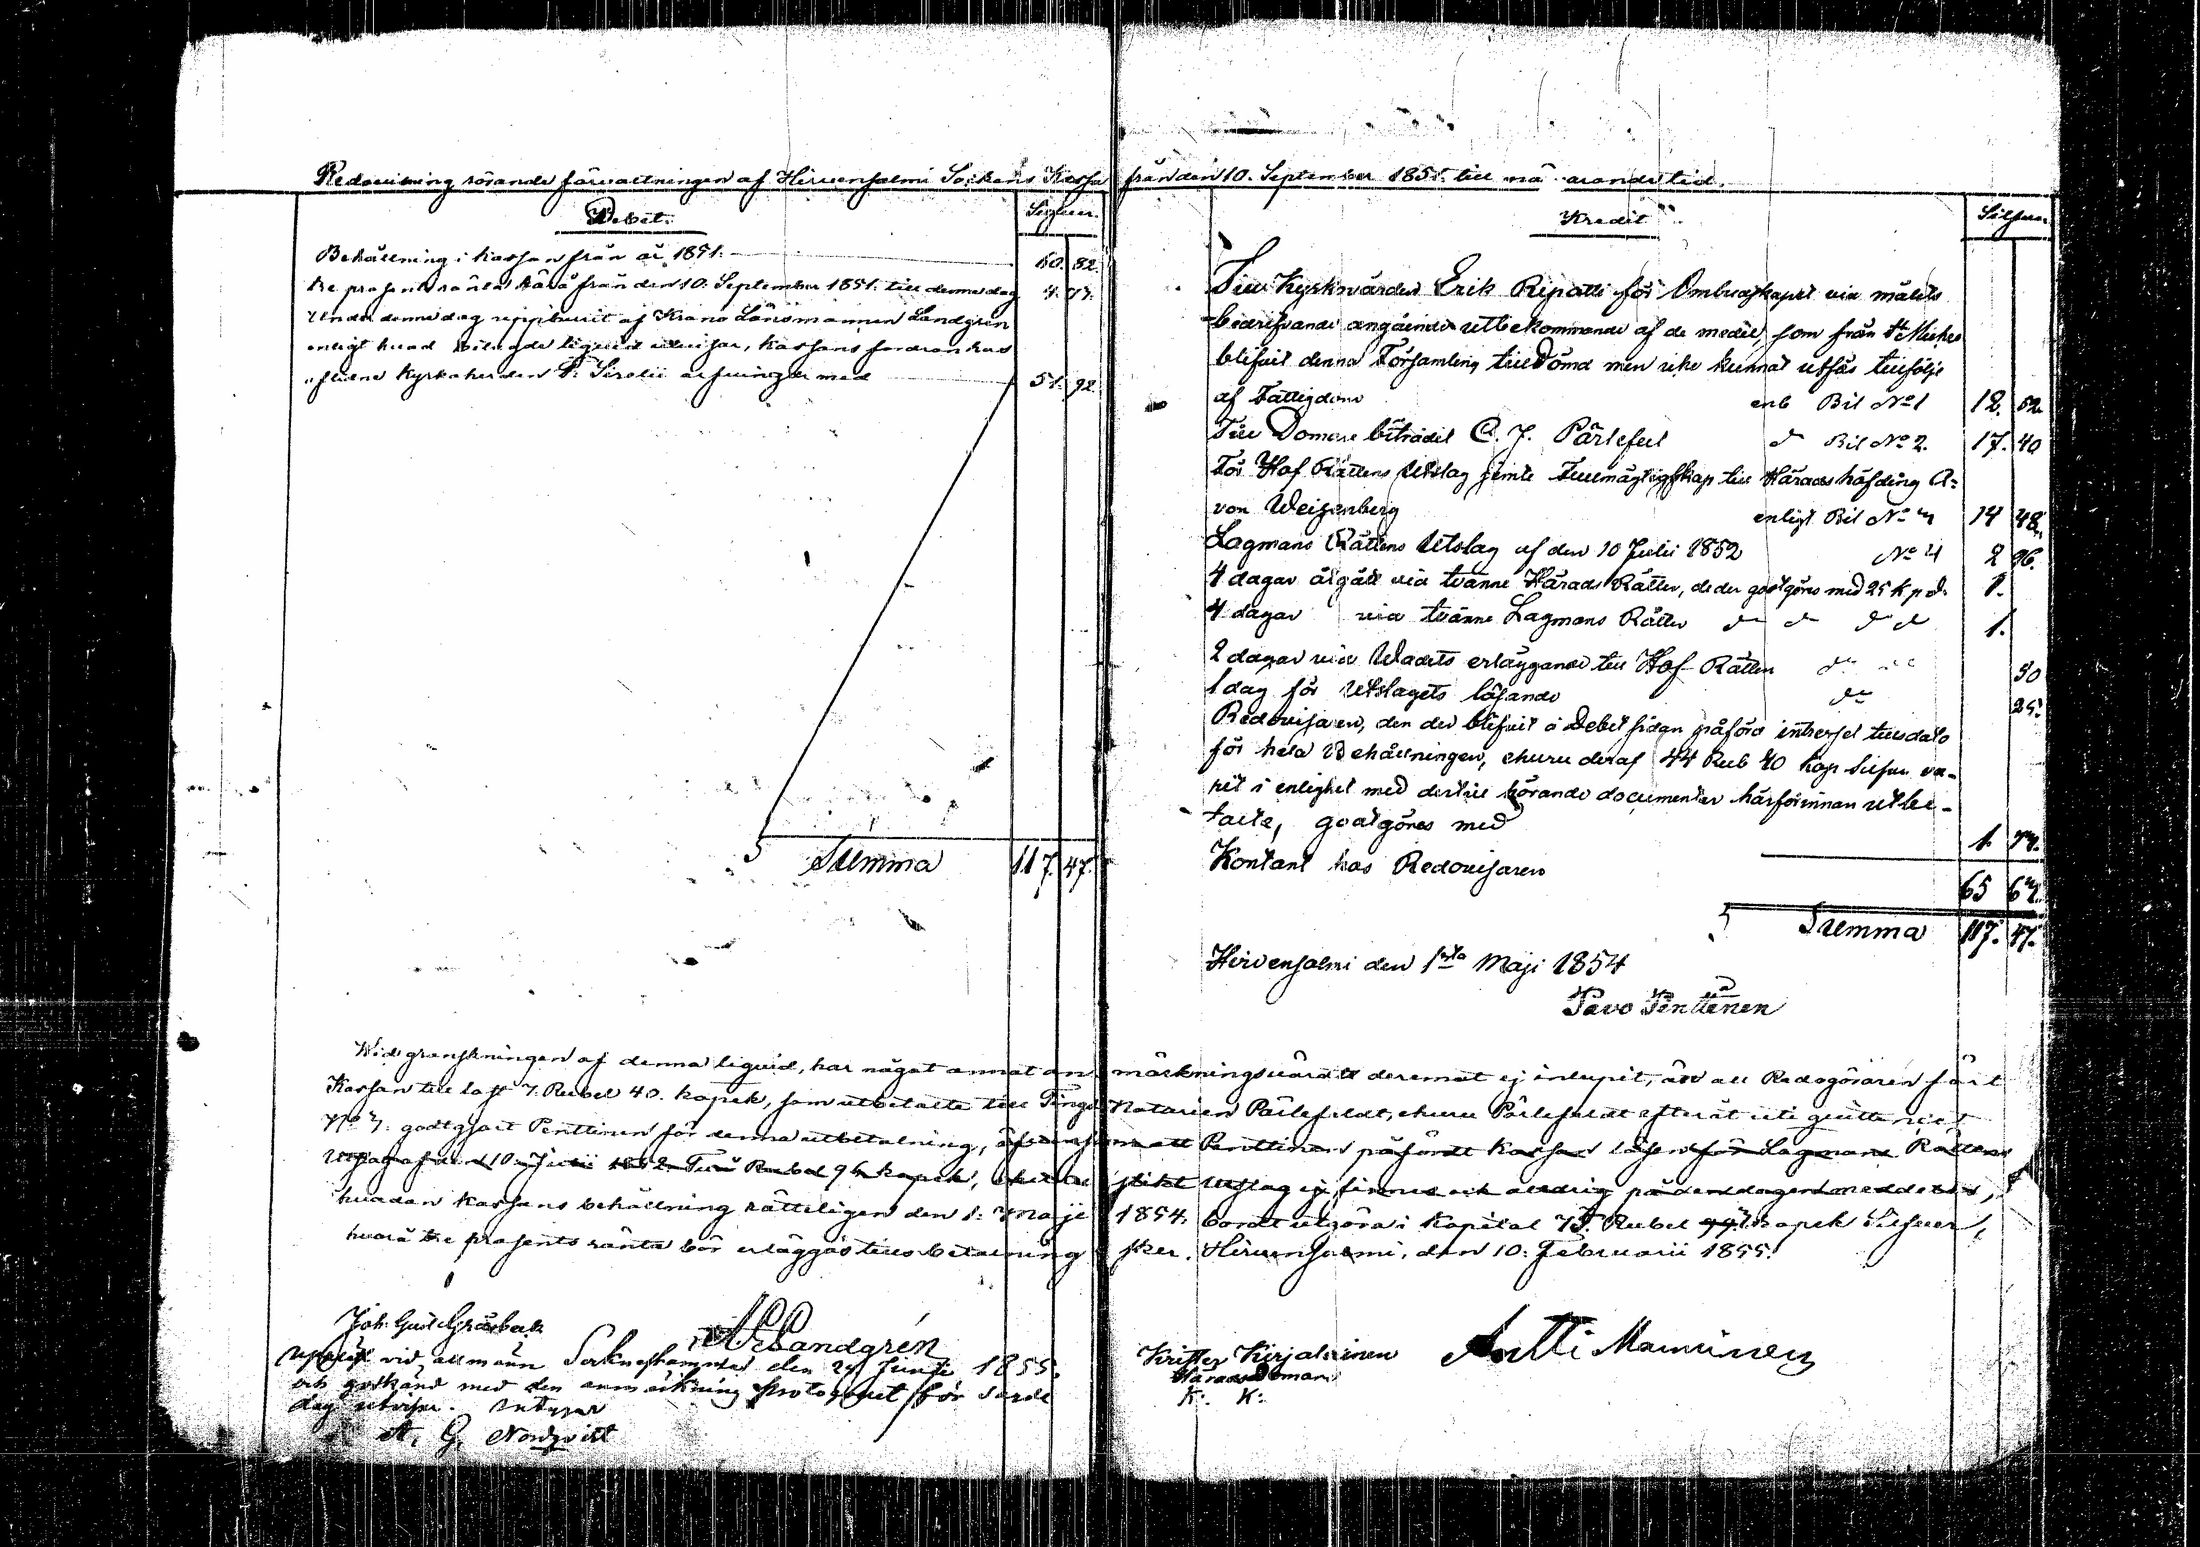 Redovisning rörande förvaltningen af Hirvensalmi Sockens Kassa från den 10. September 1851. till närvarande tid.
Debet.
Silfver.
Behållning i Kassan från år 1851. 60. 82.
tre procents ränta härå från den 10. September 1851. till denna dag 4. 73.
Under denna dag uppburit af Krono Länsmannen Landgren
enligt hvad bilagde liqvid utvisar, Kassans fordran hos
aflidne Kyrkoherden F. Sirelii arfvingar med 51. 92.
Summa 117. 47.
Kredit
Silfver.
Till Kyrkvärden Erik Ripatti för Ombudskapet vid målets
bedrifvande angående utbekommande af de medel, som från St Michel
blifvit denna Församling tilldömd men icke kunnat utfås tillfölje
af Fattigdom enl Bil No 1 12. 52.
Till Domare biträdet C. J. Pärlefelt do Bil No 2. 17. 40
För Hof Rättens Utslag jemte Fullmägtigskap till Häradshöfding A:
von Weizenberg enligt Bil No 3 14 48.
Lagmans Rättens Utslag af den 10 Julii 1852 No 4 2 96.
4 dagar åtgått vid tvänne Härads Rätter, de der godtgöras med 25 K p d. 1.
4 dagar vid tvänne Lagmans Rätter do do do do 1.
2 dagar vid Wadets erläggande till Hof Rätten do 50
1 dag för Utslagets lösande do 25.
Redovisaren, den der blifvit å Debet sidan påförd interset tillsdato
för hela Behållningen, ehuru deraf 44 Rub 40 kop Silfver va-
rit i enlighet med dertill hörande documenter härförinnan utbe-
talte, godtgöres med 1. 73.
Kontant hos Redovisaren 65 63.
Summa 117. 47.
Hirvensalmi den 1sta Maji 1854
Pavo Penttinen
Wid granskningen af denna liqvid, har något annat anmärkningsvärdt deremot ej inlupit, än att Redogöraren fört
Kassan till last 7. Rubel 40. kopek, som utbetalte till Tings Notarien Pärlefeldt, ehuru Pärlefeldt efter
No 7. godtgjort Penttinen för denna utbetalning, äfvensom att Penttinen påfördt Kassan lösen för Lagmans Rättens
Utslag af den 10. Julii 1852. Två Rubel 96 kopek, slikt Utslag ej finnes och aldrig på den dagen meddelts,
hvadan Kassans behållning rätteligen den 1. Maji 1854. bordt utgöra i Kapital 73. Rubel kopek Silfver,
hvarå tre procents ränta bör erläggas tills betalning sker. Hirvensalmi, den 10. Februarii 1855.
Joh. Gust. Gråsbeck
Landgrén
Krister Kirjalainen
Härads Domare
K: K:
Antti Manninen
Uppläst vid allmänn Sockne stämma den 24 Junji 1855.
och godkänd med den anmärkning protocollet för samma
dag utvisar. Intygar
A. G. Nordqvist